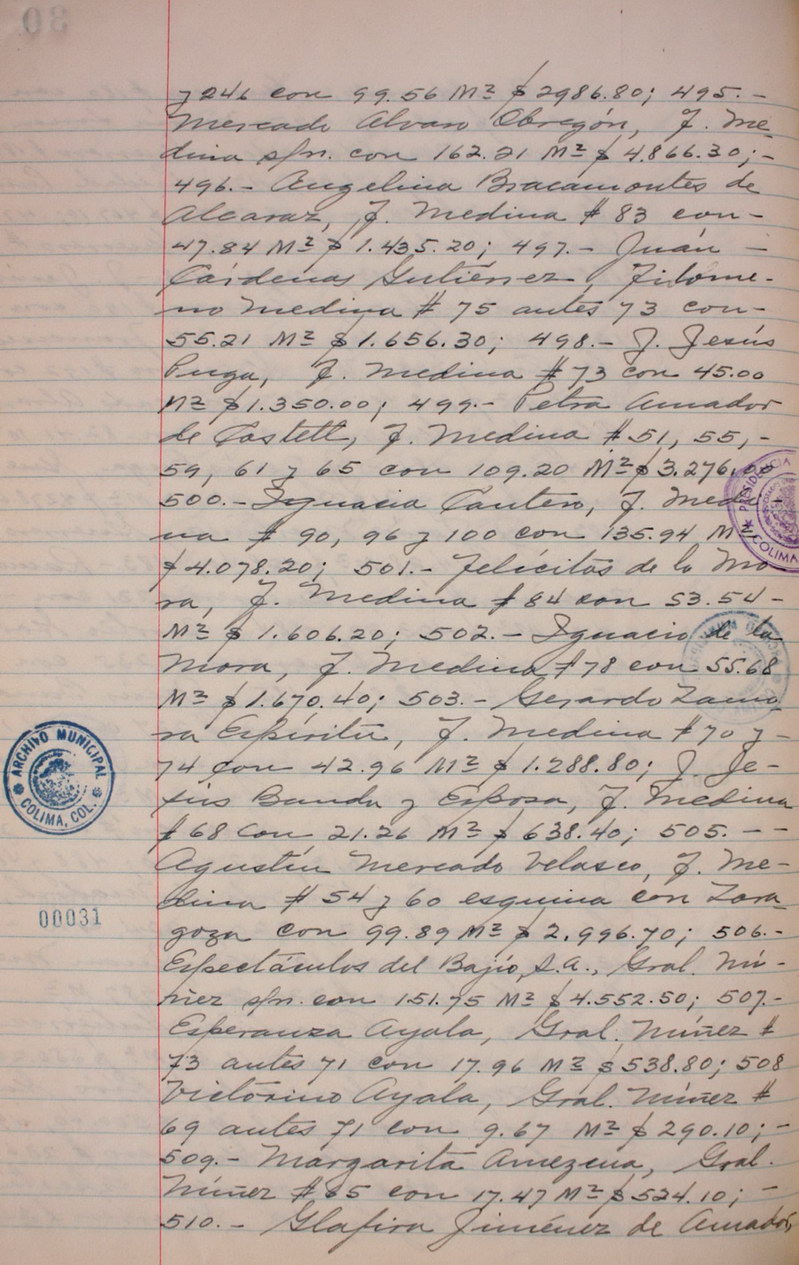 y 246 con 99.56 M² $ 2986.80; 495.-
Mercado Alvaro Obregón, F. Me-
dina s/n. con 162.21 M² $ 4.866.30;-
496.- Angelina Bracamontes de
Alcaraz, F. Medina # 83 con-
47.84 M² $ 1.435.20; 497.- Juán -
Cárdenas Gutiérrez, Filome-
no Medina # 75 antes 73 con-
55.21 M² $ 1.656.30; 498.- J. Jesús
Puga, F. Medina # 73 con 45.00
M² $ 1.350.00; 499.- Petra Amador
de Castell, F. Medina # 51, 55,-
59, 61 y 65 con 109.20 M² $ 3.276.00
500.- Ignacia Cautero, F. Medi-
na # 90, 96 y 100 con 135.94 M²
$ 4.078.20; 501.- Felícitas de la Mo-
ra, F. Medina # 84 con 53.54-
M² $ 1.606.20; 502.- Ignacio de la
Mora, F. Medina # 78 con 55.68
M² $ 1.670.40; 503.- Gerardo Zamo-
ra Espíritu, F. Medina # 70 y-
74 con 42.96 M² $ 1.288.80; J. Je-
sús Banda y Esposa, F. Medina
# 68 con 21.26 M² $ 638.40; 505.- -
Agustín Mercado Velasco, F. Me-
dina # 54 y 60 esquina con Zara-
goza con 99.89 M² $ 2,996.70; 506.-
Espectáculos del Bajío, S.A., Gral. Nú-
ñez s/n. con 151.75 M² $ 4.552.50; 507.-
Esperanza Ayala, Gral. Núñez #
73 antes 71 con 17.96 M² $ 538.80; 508
Victorino Ayala, Gral. Núñez #
69 antes 71 con 9.67 M² $ 290.10;-
509.- Margarita Amezcua, Gral.
Núñez # 65 con 17.47 M² $ 524.10; -
510.- Glafira Jiménez de Amador,
ARCHIVO MUNICIPAL
COLIMA, COL.
00031
PRESIDENCIA
COLIMA